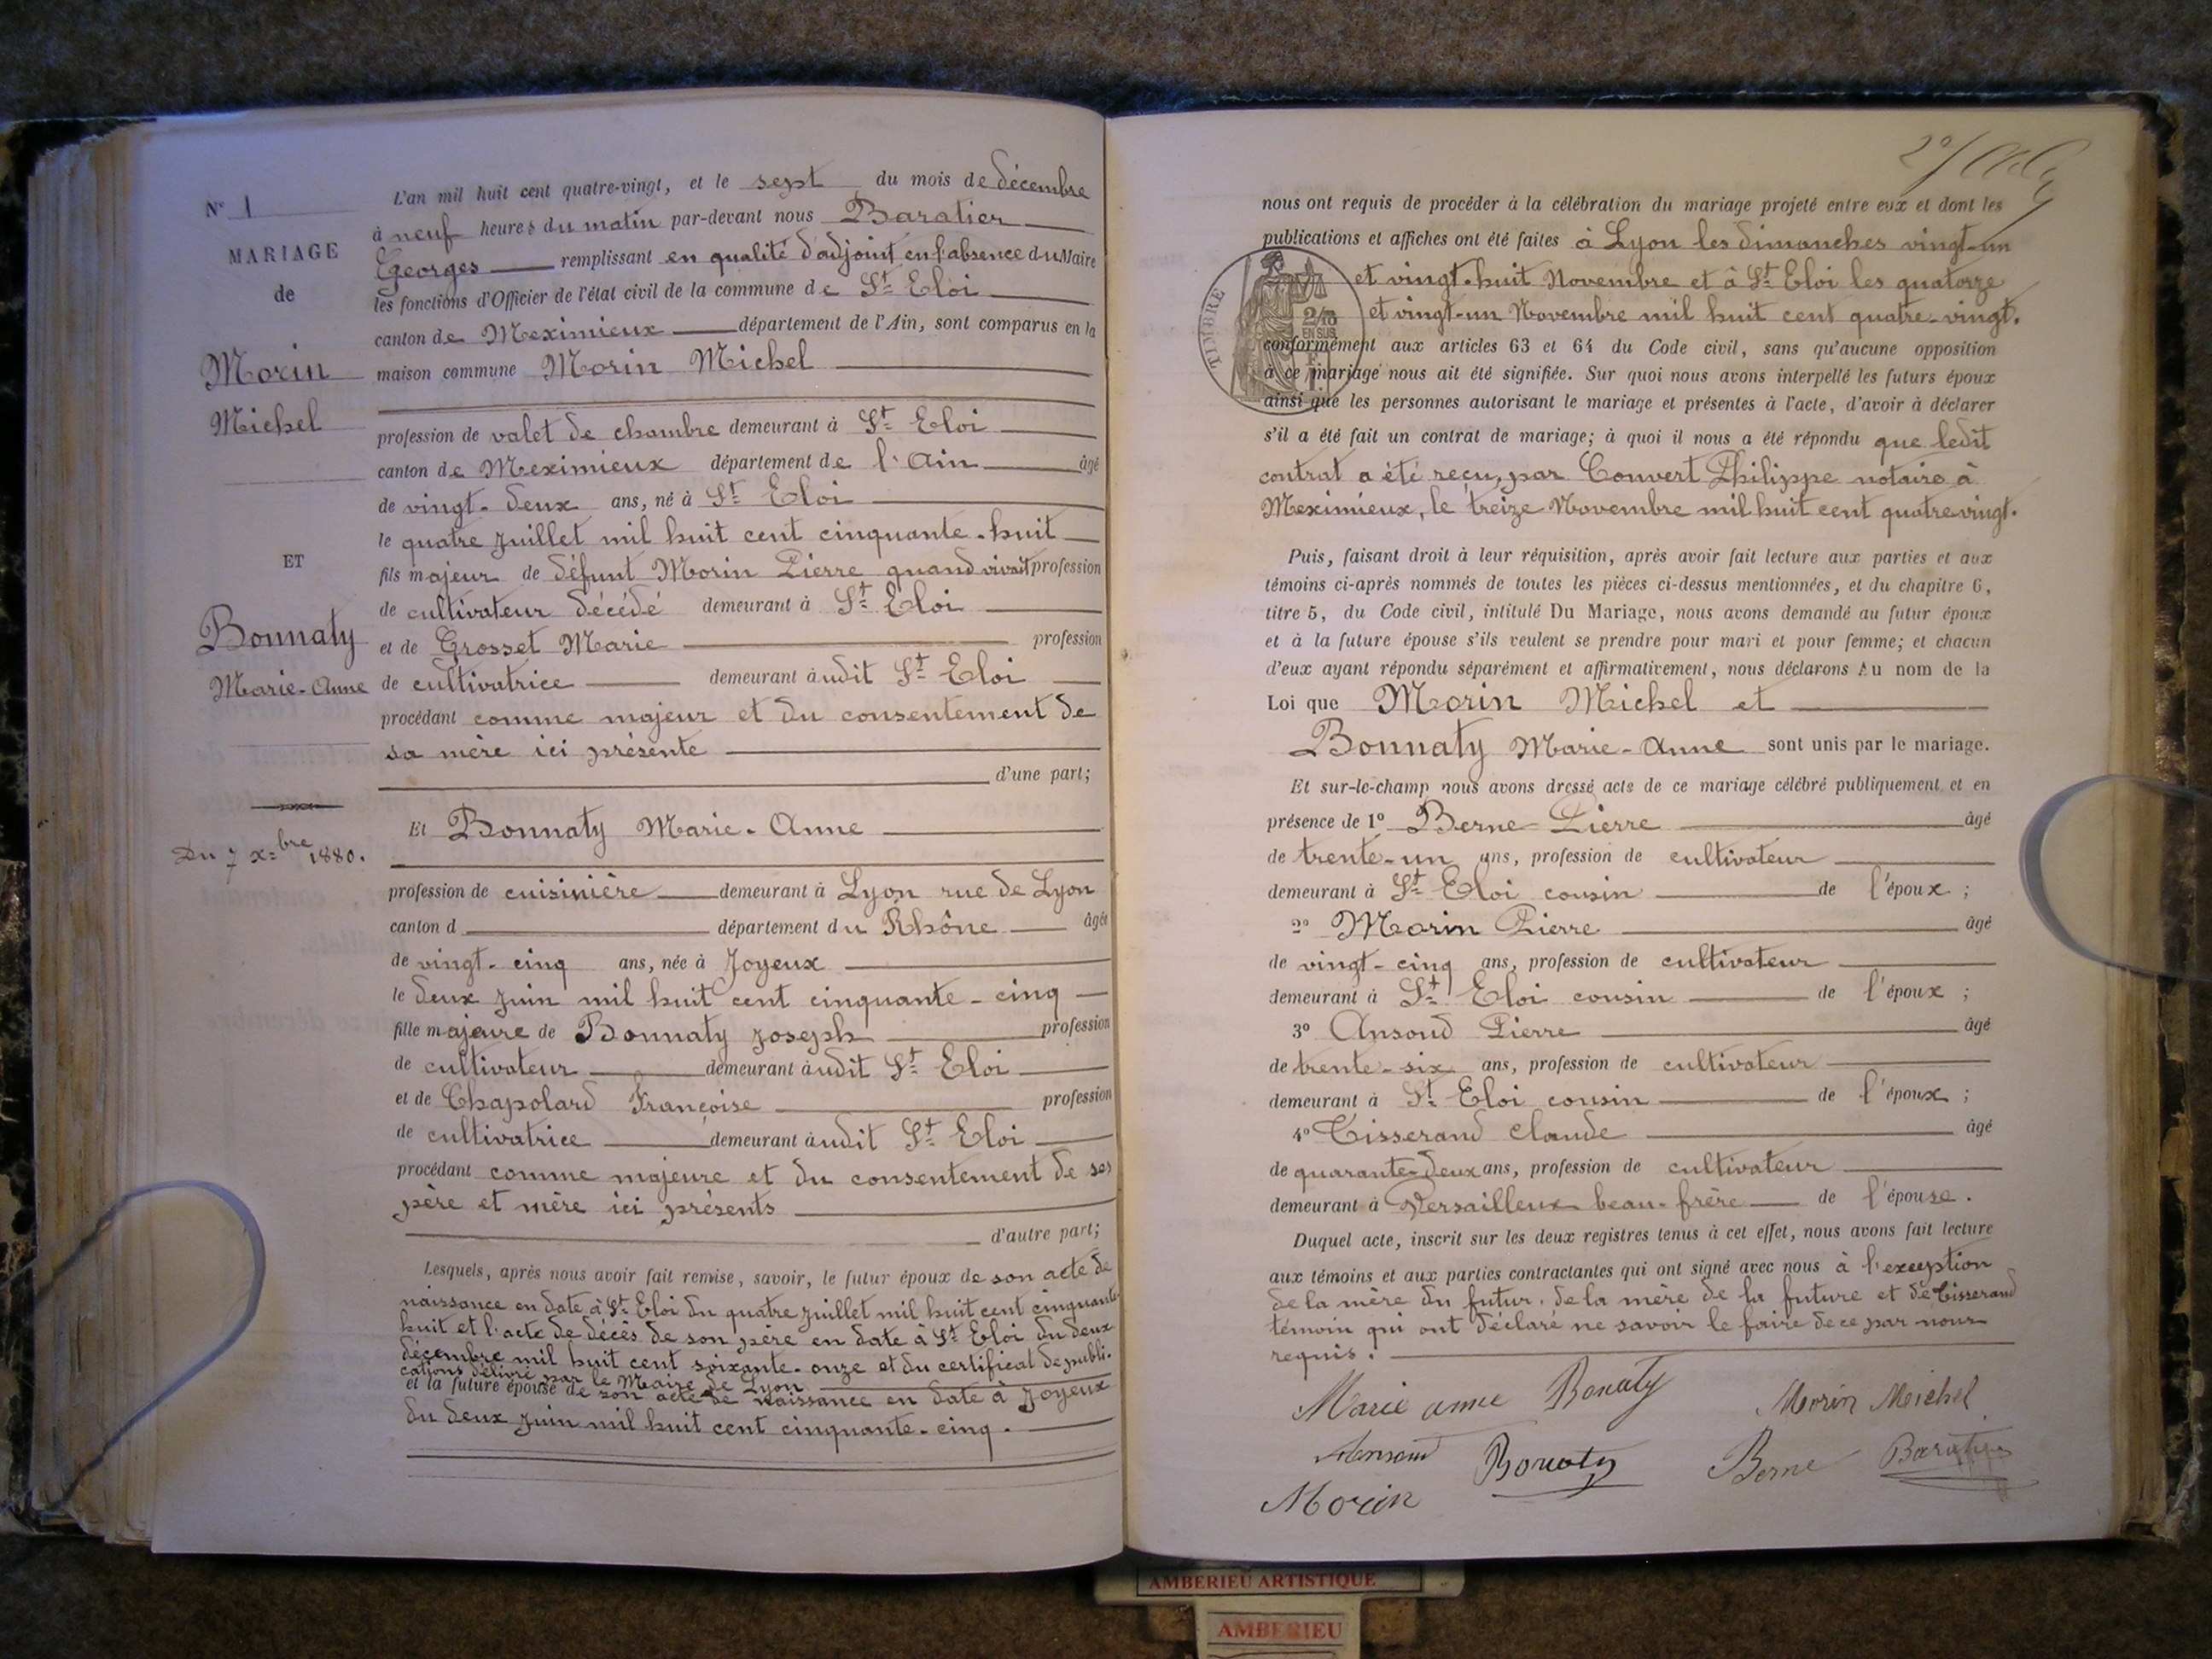 N° 1
MARIAGE
de
Morin
Michel
ET
Bonnaty
Marie-Anne
Du 7 x=bre 1880.
L'an mil huit cent quatre-vingt, et le sept du mois de décembre
à neuf heures du matin par-devant nous Baratier
Georges remplissant en qualité d'adjoint en l'absence du Maire
les fonctions d'Officier de l'état civil de la commune de St Eloi
canton de Meximieux département de l'Ain, sont comparus en la
maison commune Morin Michel
profession de valet de chambre demeurant à St Eloi
canton de Meximieux département de l'Ain âgé
de vingt-deux ans, né à St Eloi
le quatre Juillet mil huit cent cinquante-huit
fils majeur de défunt Morin Pierre quand vivait profession
de cultivateur décédé demeurant à St Eloi
et de Grosset Marie profession
de cultivatrice demeurant àudit St Eloi
procédant comme majeur et du consentement de
sa mère ici présente
d'une part;
Et Bonnaty Marie-Anne
profession de cuisinière demeurant à Lyon rue de Lyon
canton d département du Rhône âgée
de vingt-cinq ans, née à Joyeux
le deux Juin mil huit cent cinquante-cinq
fille majeure de Bonnaty Joseph profession
de cultivateur demeurant àudit St Eloi
et de Chapolard Françoise profession
de cultivatrice demeurant àudit St Eloi
procédant comme majeure et du consentement de ses
père et mère ici présents
d'autre part;
Lesquels, après nous avoir fait remise, savoir, le futur époux de son acte de
naissance en date à St Eloi du quatre Juillet mil huit cent cinquante
huit et l'acte de décès de son père en date à St Eloi du deux
décembre mil huit cent soixante-onze et du certificat de publi-
cations délivré par le Maire de Lyon
et la future épouse de son acte de naissance en date à Joyeux
du deux Juin mil huit cent cinquante-cinq.
nous ont requis de procéder à la célébration du mariage projeté entre eux et dont les
publications et affiches ont été faites à Lyon les dimanches vingt-un
et vingt-huit Novembre et à St Eloi les quatorze
et vingt-un Novembre mil huit cent quatre-vingt.
TIMBRE
2/10
EN SUS
conformément aux articles 63 et 64 du Code civil, sans qu'aucune opposition
à ce mariage nous ait été signifiée. Sur quoi nous avons interpellé les futurs époux
ainsi que les personnes autorisant le mariage et présentes à l'acte, d'avoir à déclarer
s'il a été fait un contrat de mariage; à quoi il nous a été répondu que ledit
contrat a été reçu par Convert Philippe notaire à
Meximieux, le treize Novembre mil huit cent quatre vingt.
Puis, faisant droit à leur réquisition, après avoir fait lecture aux parties et aux
témoins ci-après nommés de toutes les pièces ci-dessus mentionnées, et du chapitre 6,
titre 5, du Code civil, intitulé Du Mariage, nous avons demandé au futur époux
et à la future épouse s'ils veulent se prendre pour mari et pour femme; et chacun
d'eux ayant répondu séparément et affirmativement, nous déclarons Au nom de la
Loi que Morin Michel et
Bonnaty Marie-Anne sont unis par le mariage.
Et sur-le-champ nous avons dressé acte de ce mariage célébré publiquement et en
présence de 1° Berne Pierre âgé
de trente-un ans, profession de cultivateur
demeurant à St Eloi cousin de l'époux ;
2° Morin Pierre âgé
de vingt-cinq ans, profession de cultivateur
demeurant à St Eloi cousin de l'époux ;
3° Ansoud Pierre âgé
de trente-six ans, profession de cultivateur
demeurant à St Eloi cousin de l'époux ;
4° Tisserand Claude âgé
de quarante-deux ans, profession de cultivateur
demeurant à Versailleux beau-frère de l'épouse.
Duquel acte, inscrit sur les deux registres tenus à cet effet, nous avons fait lecture
aux témoins et aux parties contractantes qui ont signé avec nous à l'exception
de la mère du futur, de la mère de la future et de Tisserand
témoin qui ont déclaré ne savoir le faire de ce par nous
requis.
Marie anne Bonaty Morin Meichel
Ansoud Bonaty Berne Baratier
Morin
AMBERIEU ARTISTIQUE
AMBERIEU